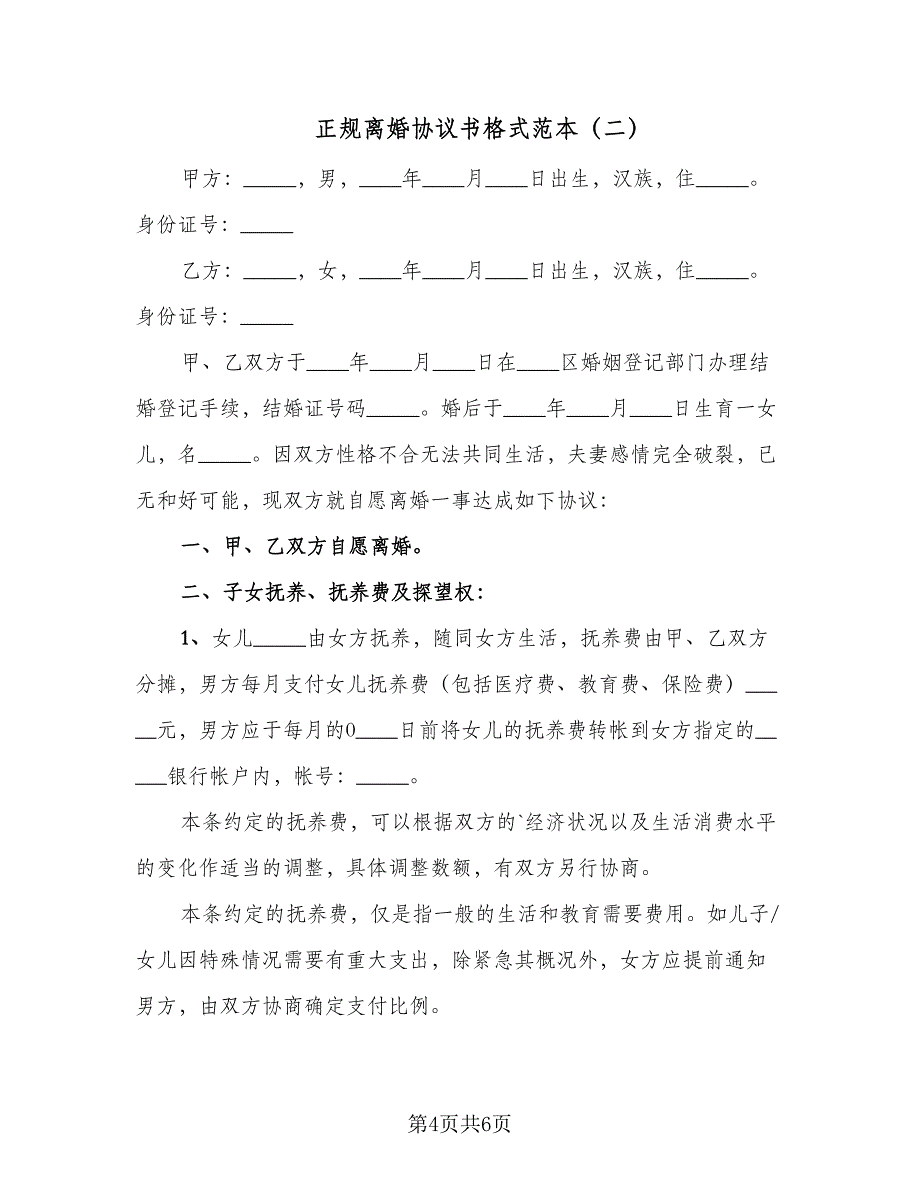 正规离婚协议书格式范本（二）
甲方：_____，男，____年____月____日出生，汉族，住_____。
身份证号：_____
乙方：_____，女，____年____月____日出生，汉族，住_____。
身份证号：_____
甲、乙双方于____年____月____日在____区婚姻登记部门办理结
婚登记手续，结婚证号码_____。婚后于____年____月____日生育一女
儿，名_____。因双方性格不合无法共同生活，夫妻感情完全破裂，已
无和好可能，现双方就自愿离婚一事达成如下协议：
一、甲、乙双方自愿离婚。
二、子女抚养、抚养费及探望权：
1、女儿_____由女方抚养，随同女方生活，抚养费由甲、乙双方
分摊，男方每月支付女儿抚养费（包括医疗费、教育费、保险费）___
__元，男方应于每月的0____日前将女儿的抚养费转帐到女方指定的__
___银行帐户内，帐号：_____。
本条约定的抚养费，可以根据双方的`经济状况以及生活消费水平
的变化作适当的调整，具体调整数额，有双方另行协商。
本条约定的抚养费，仅是指一般的生活和教育需要费用。如儿子/
女儿因特殊情况需要有重大支出，除紧急其概况外，女方应提前通知
男方，由双方协商确定支付比例。
第4页共6页